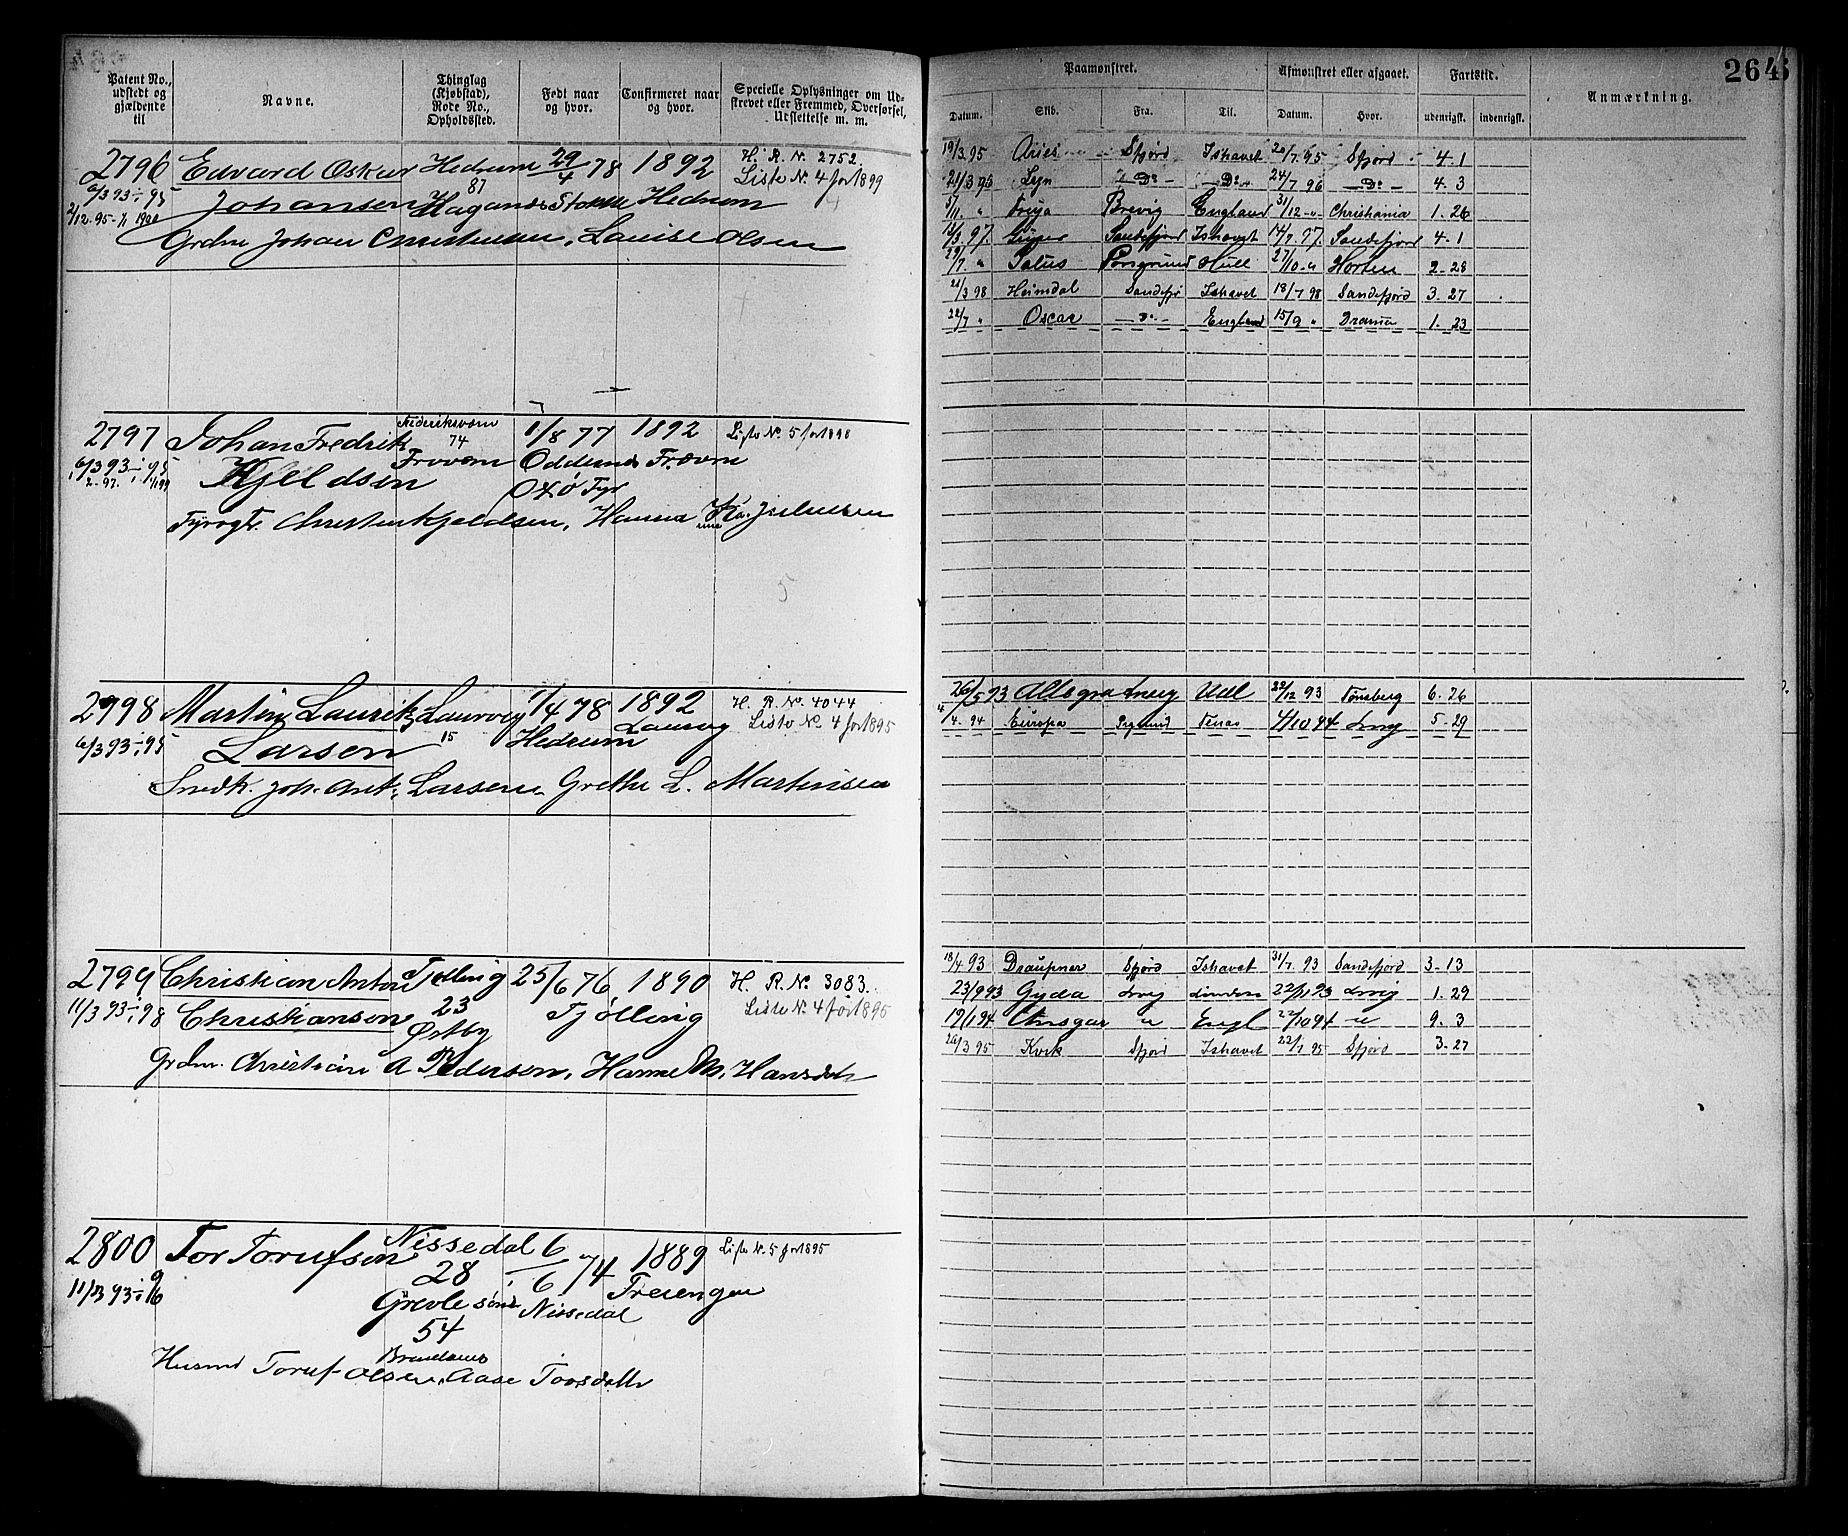 Patent No., udstedt og gjældende til
Navne.
Thinglag (Kjøbstad), Rode No., Opholdssted.
Født naar og hvor.
Confirmeret naar og hvor.
Specielle Oplysninger om Udskrevet eller Fremmed, Overførsel, Udslettelse m. m.
2796 Edvard Oskar Hedrum 29/4 78 1892 H. R. N. 2752.
6/3 93 - 1/1 95 87 Liste N. 4 for 1899
2/12.95 - 1/1 1900 Johansen Hedrum
Grdm Johan Christensen, Louise Olsen
2797 Johan Fredrik Frederiksværn 1/8 77 1892 Liste No. 5 for 1898
74
6/3 93 - 1/1 95 Kjeldsen Frværn Oddernes Frværn
Oxö Fyr
Fyrvgt. Christen Kjeldsen, Hanna
2798 Martin Laurits Laurvig 1/4 78 1892 H. R. No. 4044
6/3 93 - 1/1 95 Larsen 15 Hedrum Laurvig Liste No. 4 for 1895
Snedk. Joh. Ant. Larsen, Grethe L. Martinsen
2799 Christian Anton Tjølling 25/6 76 1890 H. R. No. 3083.
11/3 93 - 1/1 98 Christiansen 23 Østby Tjølling Liste N. 4 for 1895
Grdm. Christian A Pedersen, Hanne M. Hansdtr
2800 Tor Torufsen Nissedal 6/6 74 1889 Liste N. 5 for 1895
28
11/3 93 - Nissedal Treungen
54
Husmd Toruf Olsen, Aase Torsdatter
264
Paamønstret.
Afmønstret eller afgaaet.
Fartstid.
Anmærkning.
Datum. Skib. Fra. Til. Datum. Hvor. udenrigsk. indenrigsk.
19/3.95 Aries Sfjord Ishavet 20/7.95 Sfjord 4.1
21/3 96 Lyn Do Do 24/7 96 Do 4.3
5/11. " Freya Brevig England 31/12 " Christiania 1.26
13/3.97. Sandefjord Ishavet 14/7.97. Sandefjord 4.1
29/7. " Porsgrund Hull 27/10 " Horten 2.28
21/3 98 Heimdal Sandefj Ishavet 18/7 98 Sandefjord 3.27
22/7 " Oscar Do England 15/9 " Dramn 1.23
26/5 93 22/12 93 Tønsberg 6.26
4/4. 94 Europa 1/10 94 Lvig 5.29
18/4 93 Draupner Sfjord Ishavet 31/7. 93 Sandefjord 3.13
23/9 93 Gyda Lvig London 22/11 93 Lvig 1.29
19/1 94 Ansgar " Engl 22/10 94 " 9.3
26/3 95 Kvik Sfjord Ishavet 22/7 95 Sfjord 3.27